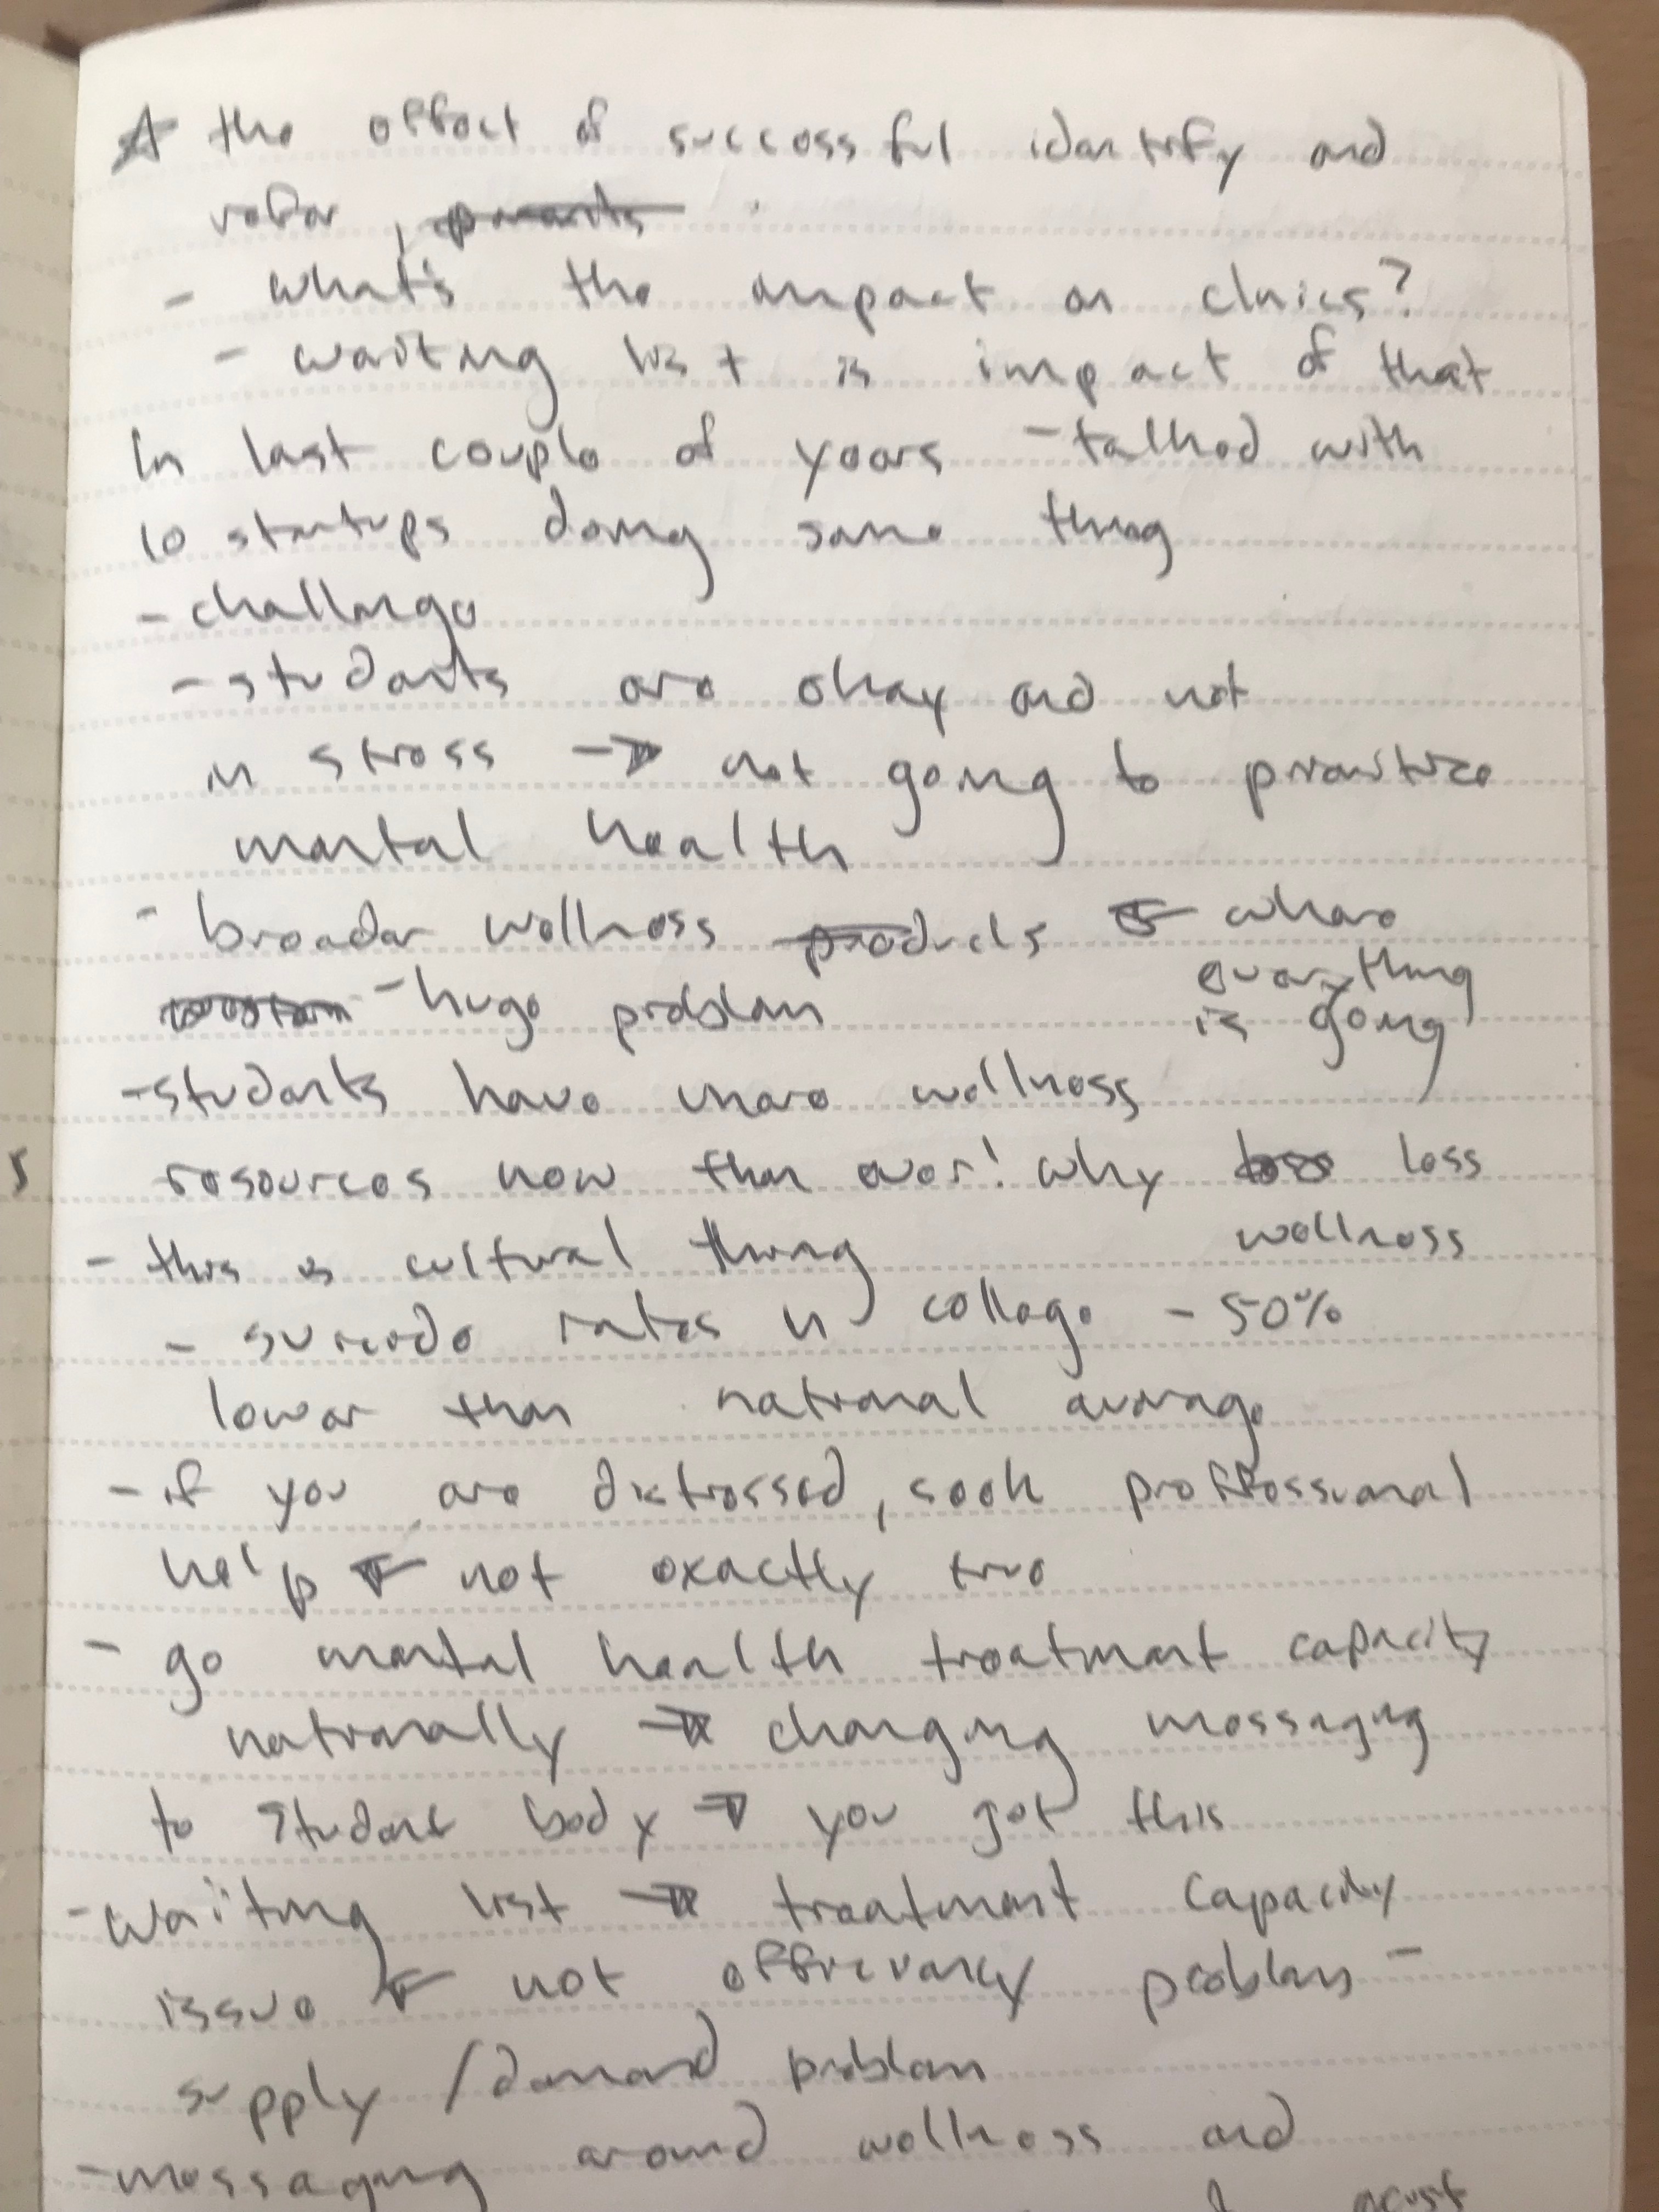 ☆ the effect of successful identify and
refer,
- what's the impact on clinics?
- waiting list is impact of that
In last couple of years - talked with
10 startups doing same thing
- challenge
- students are okay and not
in stress → not going to prioritize
mental health
- broader wellness products ← where
everything
- huge problem
is going
- students have more wellness
resources now than ever! why less
wellness
- this is cultural thing
- suicide rates in college - 50%
lower than national average
- if you are distressed, seek proffessional
help ← not exactly true
- go mental health treatment capacity
nationally → changing messaging
to student body → you got this
- waiting list → treatment capacity
issue ← not efficiency problem -
supply/demand problem
- messaging around wellness and